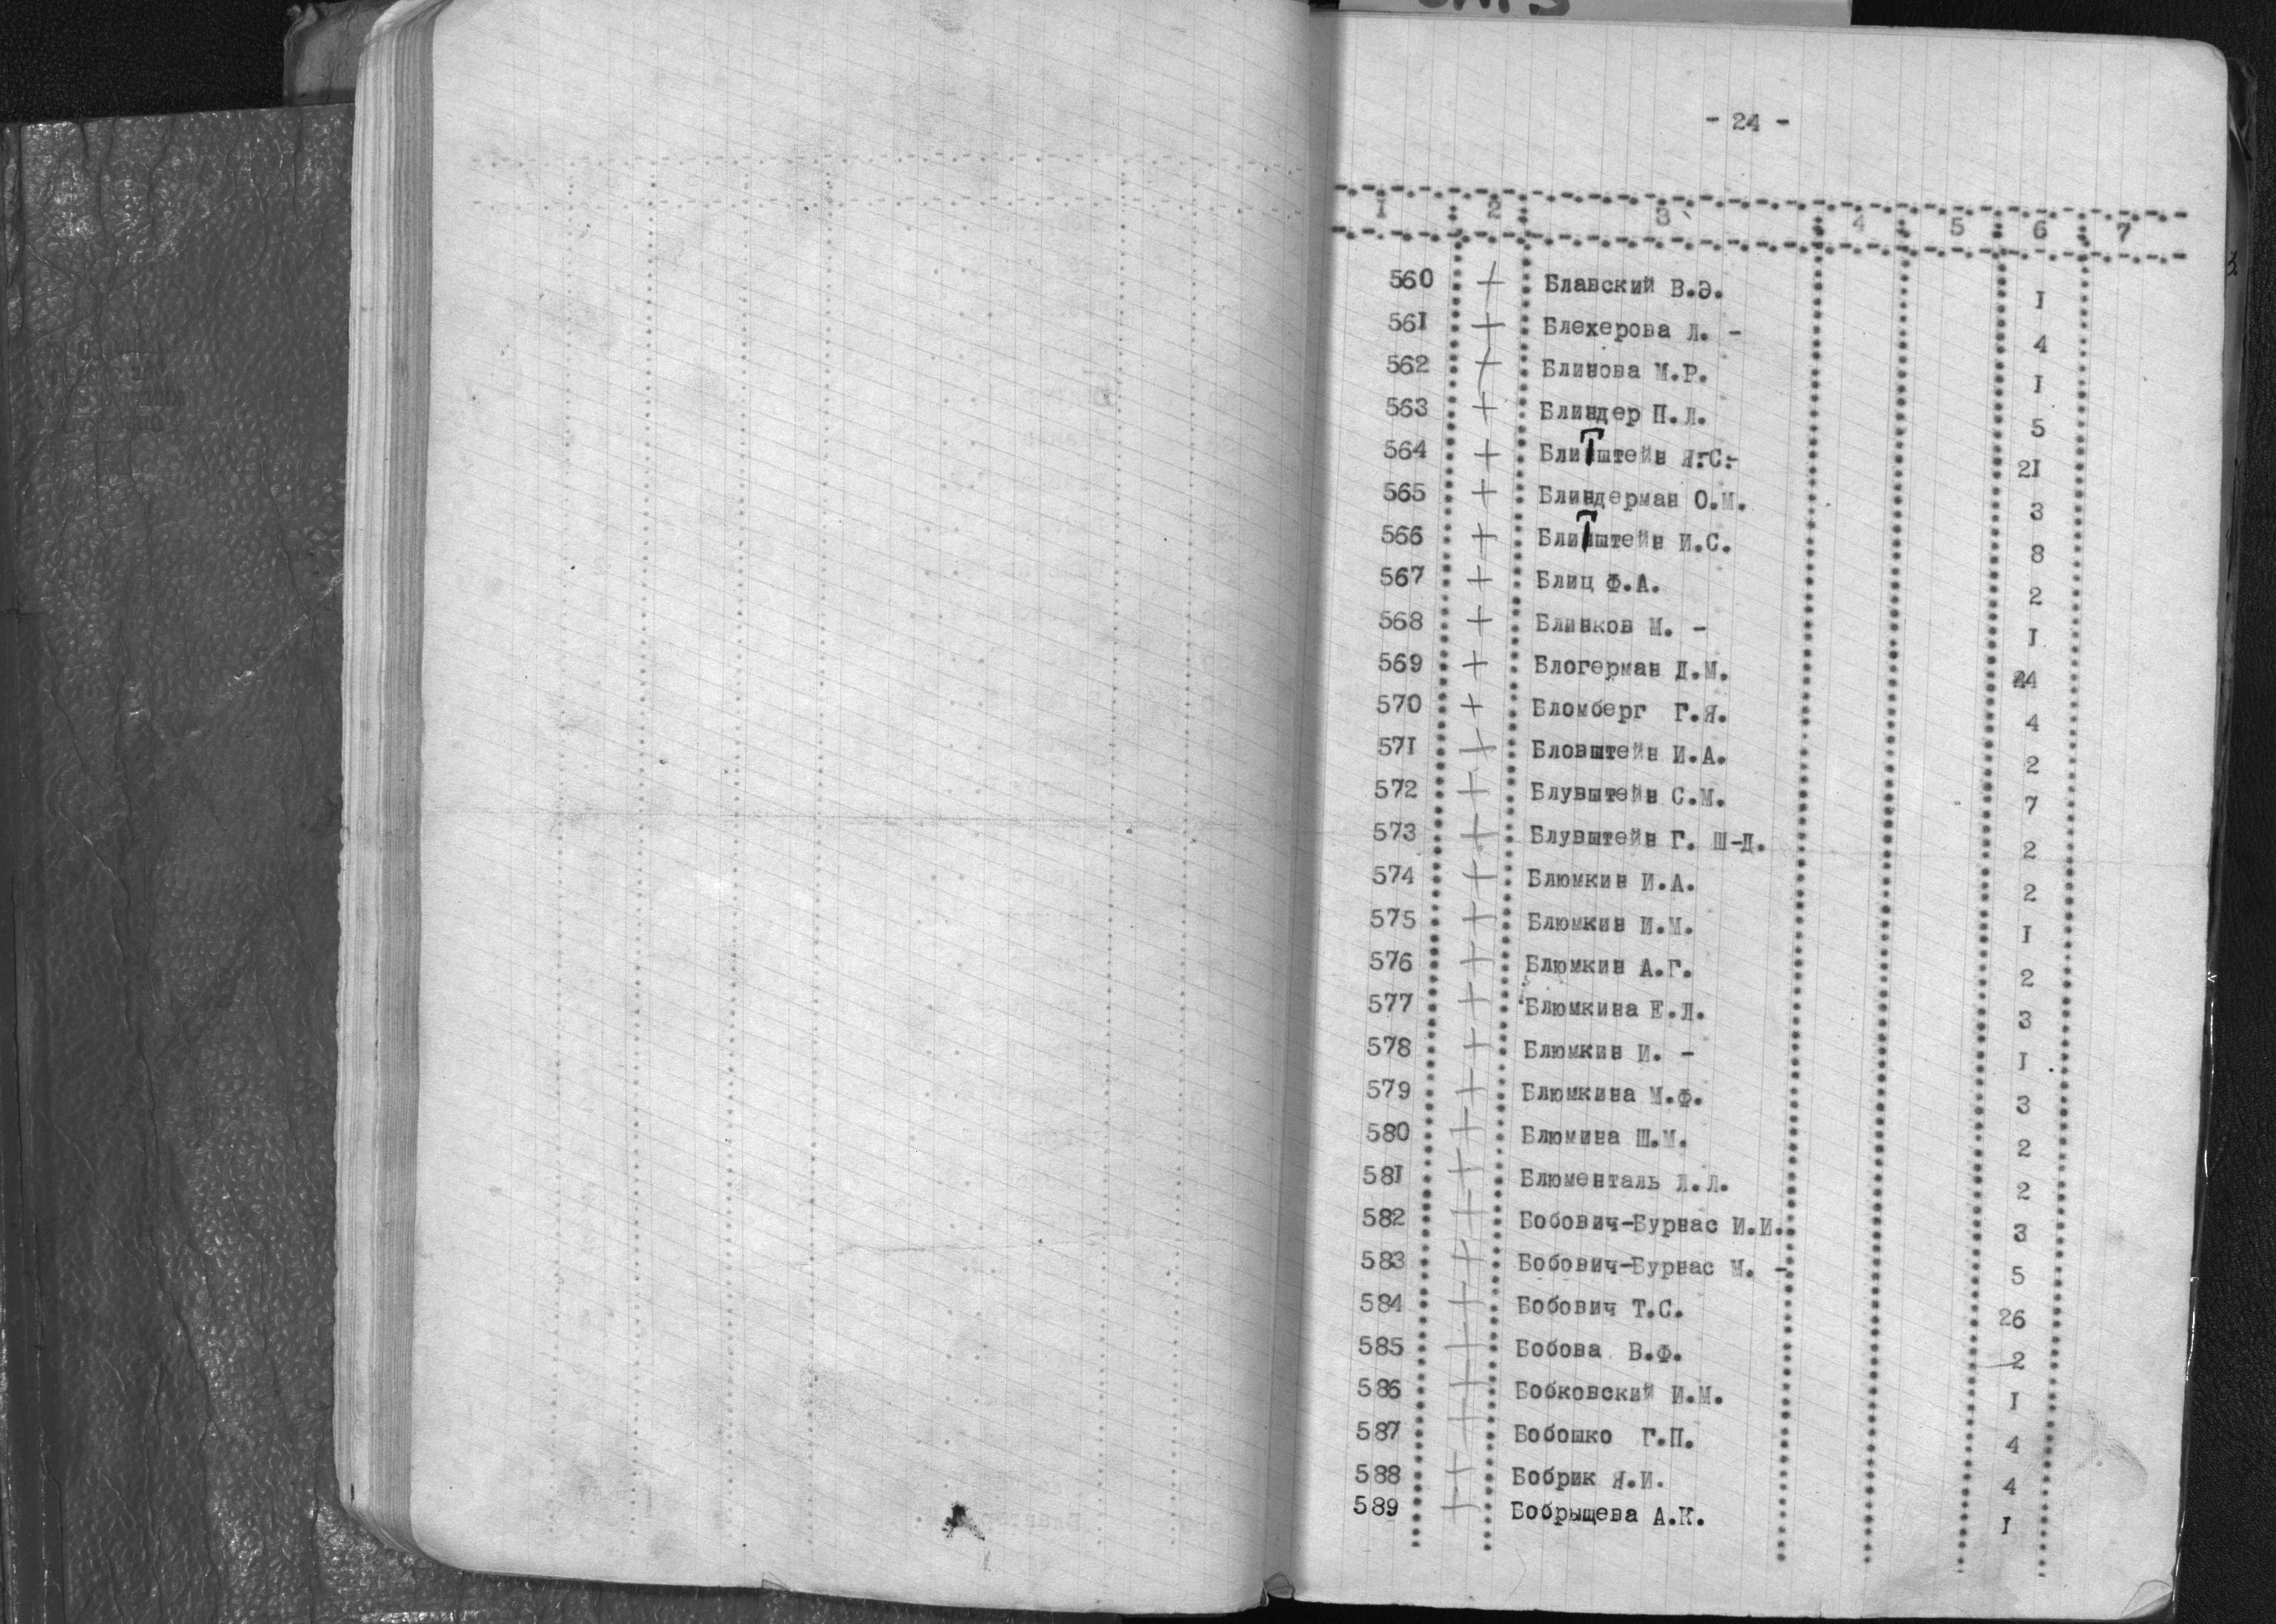 - 24 -
1 2 3 4 5 6 7
560 + Блавский В.Э. I
561 + Блехерова Л. - 4
562 + Блинова М.Р. I
563 + Блиндер П.Л. 5
564 + Блитштейн Я.С. 2I
565 + Блиндерман О.М. 3
566 + Блитштейн И.С. 8
567 + Блиц Ф.А. 2
568 + Блинков М. - I
569 + Блогерман Д.М.
570 + Бломберг Г.Я. 4
57I + Бловштейн И.А. 2
572 + Блувштейн С.М. 7
573 + Блувштейн Г. Ш-Д. 2
574 + Блюмкин И.А. 2
575 + Блюмкин И.М. I
576 + Блюмкин А.Г. 2
577 + Блюмкина Е.Л. 3
578 + Блюмкин И. - I
579 + Блюмкина М.Ф. 3
580 + Блюмина Ш.М. 2
58I + Блюменталь Л.Л. 2
582 + Бобович-Бурнас И.И. 3
583 + Бобович-Бурнас М. - 5
584 + Бобович Т.С. 26
585 + Бобова В.Ф. 2
586 + Бобковский И.М. I
587 + Бобошко Г.П. 4
588 + Бобрик Я.И. 4
589 + Бобрыщева А.К. I